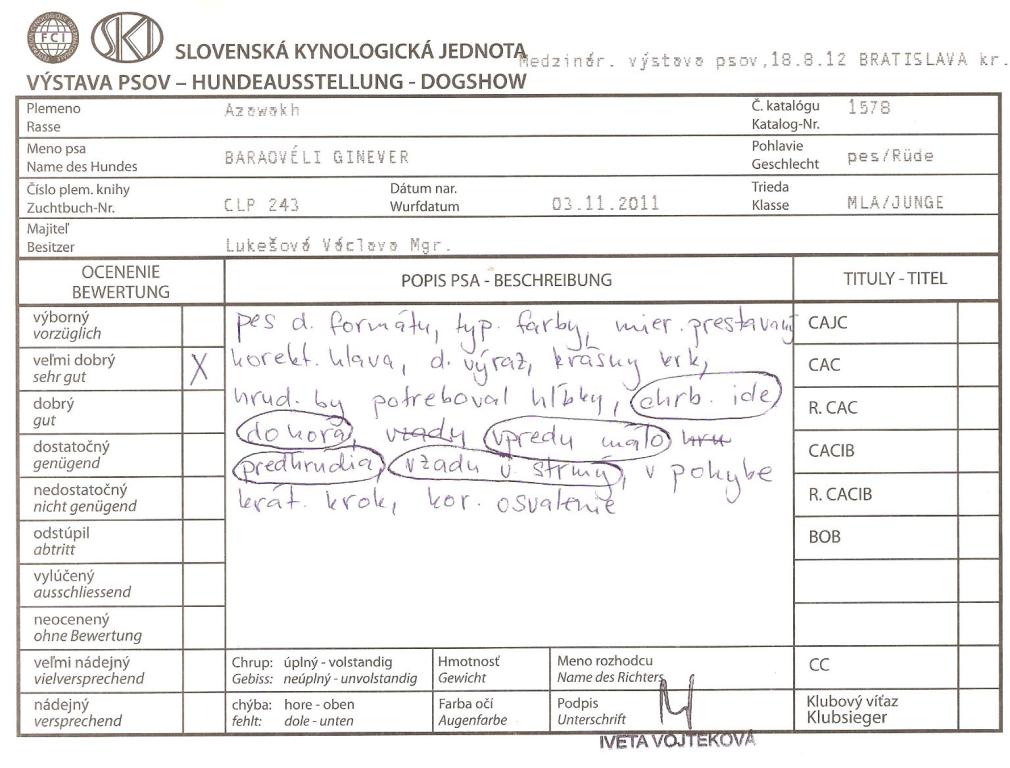 FCI
SKJ
SLOVENSKÁ KYNOLOGICKÁ JEDNOTA
Medzinár. výstava psov,18.8.12 BRATISLAVA kr.
VÝSTAVA PSOV – HUNDEAUSSTELLUNG - DOGSHOW
Plemeno
Rasse
Azawakh
Č. katalógu
Katalog-Nr.
1578
Meno psa
Name des Hundes
BARAOVÉLI GINEVER
Pohlavie
Geschlecht
pes/Rüde
Číslo plem. knihy
Zuchtbuch-Nr.
CLP 243
Dátum nar.
Wurfdatum
03.11.2011
Trieda
Klasse
MLA/JUNGE
Majiteľ
Besitzer
Lukešová Václava Mgr.
OCENENIE
BEWERTUNG
POPIS PSA - BESCHREIBUNG
TITULY - TITEL
výborný
vorzüglich
veľmi dobrý
sehr gut
X
dobrý
gut
dostatočný
genügend
nedostatočný
nicht genügend
odstúpil
abtritt
vylúčený
ausschliessend
neocenený
ohne Bewertung
veľmi nádejný
vielversprechend
nádejný
versprechend
pes d. formátu, typ. farby, mier. prestavaný
korekt. hlava, d. výraz, krásny krk,
hrud. by potreboval hĺbky, chrb. ide
do hora, vzadu vpredu málo hru
predhrudia, vzadu v. strmý, v pohybe
krát. krok, kor. osvalenie
CAJC
CAC
R. CAC
CACIB
R. CACIB
BOB
CC
Klubový víťaz
Klubsieger
Chrup: úplný - volstandig
Gebiss: neúplný - unvolstandig
chýba: hore - oben
fehlt: dole - unten
Hmotnosť
Gewicht
Farba očí
Augenfarbe
Meno rozhodcu
Name des Richters
Podpis
Unterschrift
IVETA VOJTEKOVÁ